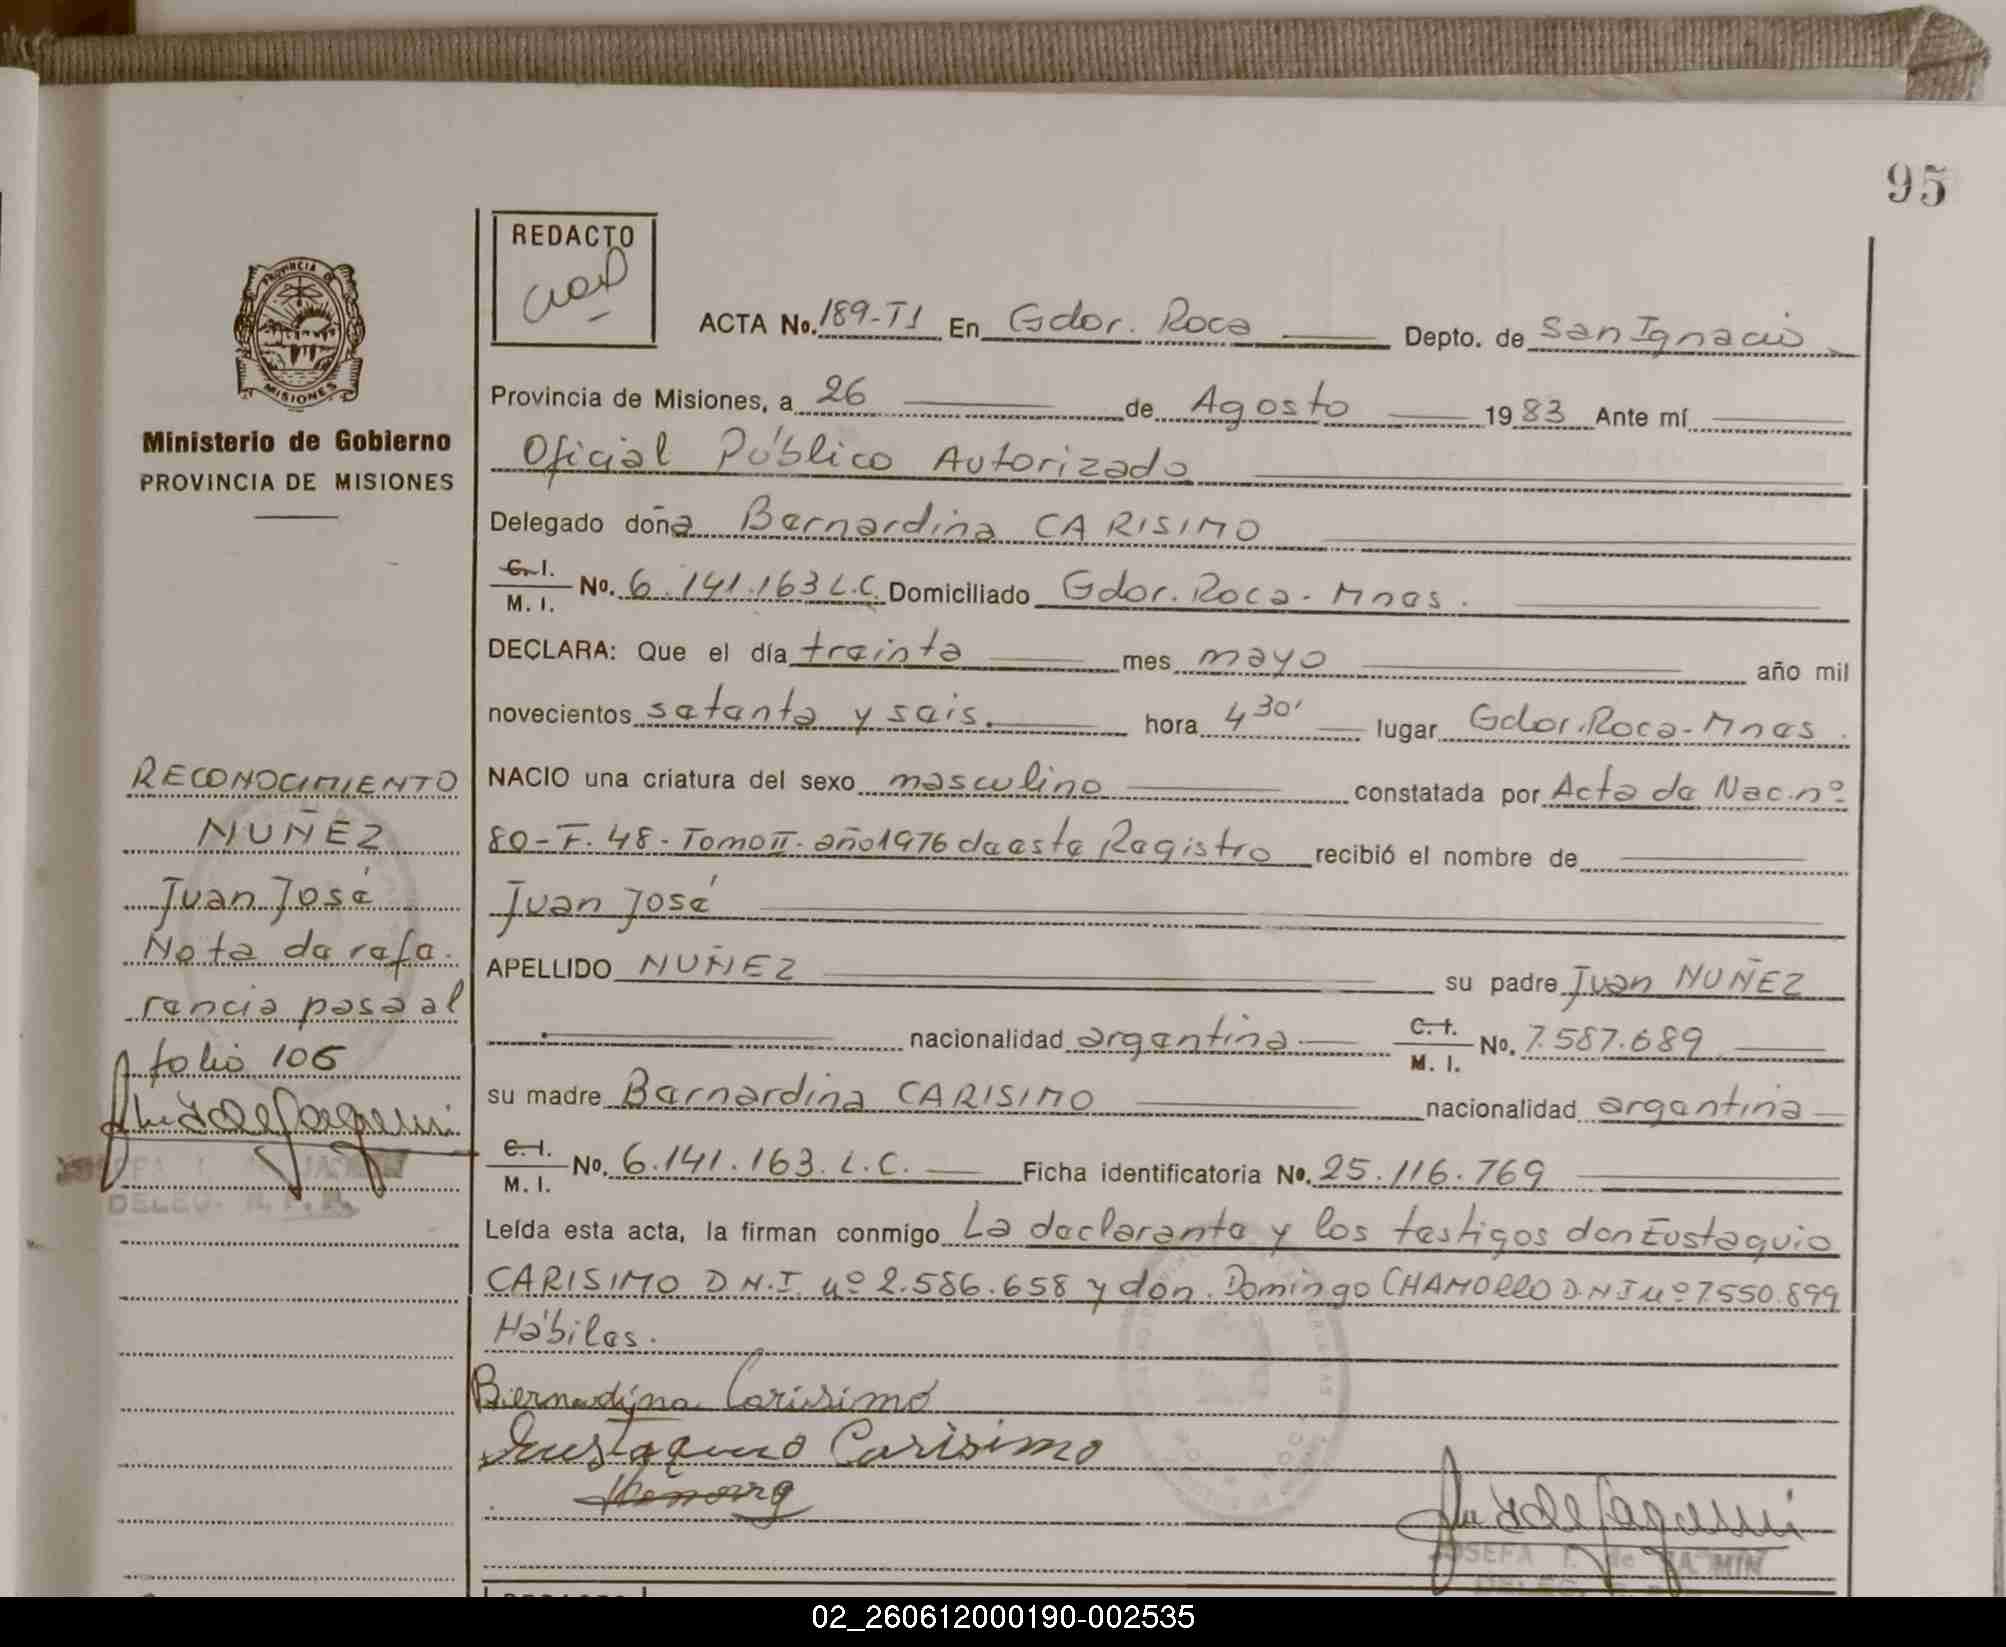 95
REDACTO
PROVINCIA DE
MISIONES
Ministerio de Gobierno
PROVINCIA DE MISIONES
ACTA No. 189-T1 En Gdor. Roca Depto. de San Ignacio
Provincia de Misiones, a 26 de Agosto 1983 Ante mí
Oficial Público Autorizado
Delegado doña Bernardina CARISIMO
C. I.
M. I. No. 6.141.163 L.C. Domiciliado Gdor. Roca - Mnes.
DECLARA: Que el día treinta mes mayo año mil
novecientos setenta y seis. hora 4 30' lugar Gdor. Roca - Mnes.
NACIO una criatura del sexo masculino constatada por Acta de Nac. nº
80 - F. 48 - Tomo II - año 1976 de este Registro recibió el nombre de
Juan José
APELLIDO NUÑEZ su padre Juan NUÑEZ
nacionalidad argentina C. I. M. I. No. 7.587.689
su madre Bernardina CARISIMO nacionalidad argentina
C. I.
M. I. No. 6.141.163. L.C. Ficha identificatoria No. 25.116.769
Leída esta acta, la firman conmigo La declarante y los testigos don Eustaquio
CARISIMO D.N.I. nº 2.586.658 y don Domingo CHAMORRO D.N.I nº 7.550.899
Hábiles.
Bernardina Carisimo
Eustaquio Carisimo
RECONOCIMIENTO
NUÑEZ
Juan José
Nota de refe-
rencia pasa al
folio 106
DELEG. R. P. P.
JOSEFA I. de
02_260612000190-002535